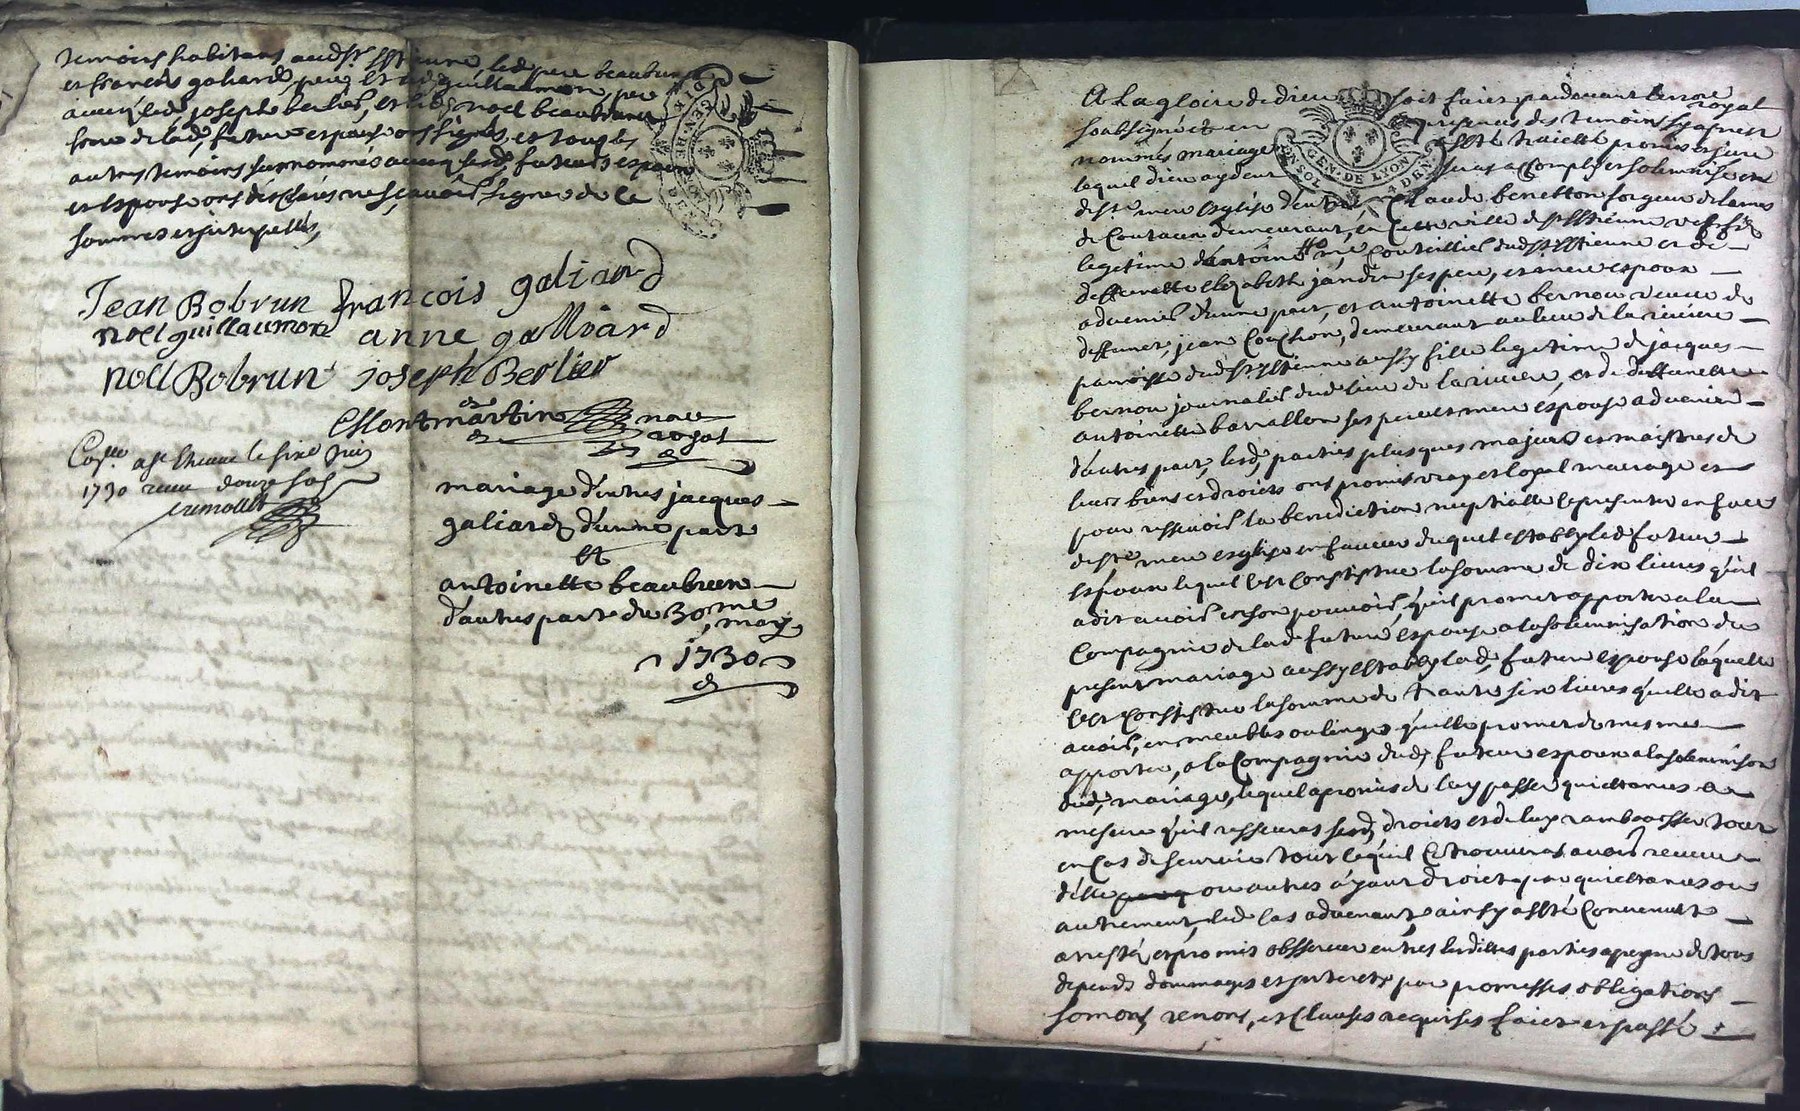 temoins habitans audst sst estienne led pere beaubrun
et francois galiard pere et led guillaumon, pere
aveucq led joseph berlier, et led noel beaubrun
frere de lad, future espouse ont signés et tous les
autres temoins surnommés aveucq lesd, futeurs espoux
et espouse ont desclarés ne sçavoir signer de ce
sommes et interpellés,
Jean Bobrun francois galiard
noel guillaumont anne galliard
noel Bobrun joseph Berlier
Montmartin nore
royal
Conlle a st Etienne le sixe juin
1730 receu douze sols
mariage d'entres jacques
galiard d'unne part
et
antoinette beaubrun
d'autres part du 30me may
1730
GEN. DE LYON 4 DEN.
A La gloire de dieu soit faict pardevant le nore royal
soubsigné et en presences des temoins sy apres
nommés mariage esté traicté promis et juré
lequel dieu aydant seras acomply et solemnise en
de ste mere esglise d'entre Claude benetton forgeur de lames
de couteaux demeurant, en cette ville de st estienne veff fils
legitime d'antoine coutellier dudst estienne et de
deffunette elizabeth jandin ses pere, et mere espoux
advenir d'unne part, et antoinette bernou veuve de
deffunct, jean Couchon, demeurant au lieu de la riviere
parroisse dudst estienne aussy fille legitime de jacques
bernou journalier dud lieu de la riviere, et de deffunette
antoinette barallon ses pere et mere espouse advenir
d'autres part, lesd, parties plusques majeurs et maistres de
leurs biens et droicts ont promis vray et loyal mariage et
pour ressevoir la benediction nuptialle se presenter en face
de ste mere esglise en faveur duquel estably led futeur
espoux lequel cest constistue la somme de dix livres qu'il
a dit avoir en son pouvoir, qu'il promet apporter a la
Compagnie de lad future, espouse a la solemnisation du
present mariage aussy estably lad, future espouse laquelle
cest constistue la somme de trante six livres qu'elle a dit
avoir, en meubles ou linges qu'elle promet de mesmes
apporter, a la Compagnie dud, futeur espoux a la solemnison
dud, mariage, lequel a promis de luy passer quictances a
mesure qu'il resseuras sesd, droicts et de luy rambourser tout
en cas de seurvie tout lequil ce trouveras avoir receu
d'elle ou autres ayant droict par quictances ou
autrement, led cas advenant, ainsy a esté Convenut
arresté, et promis obsserver entres lesdittes parties a peyne de tous
depends dommages et interetz par promesses obligations
somons, renons, et Clauses requises faict et passé